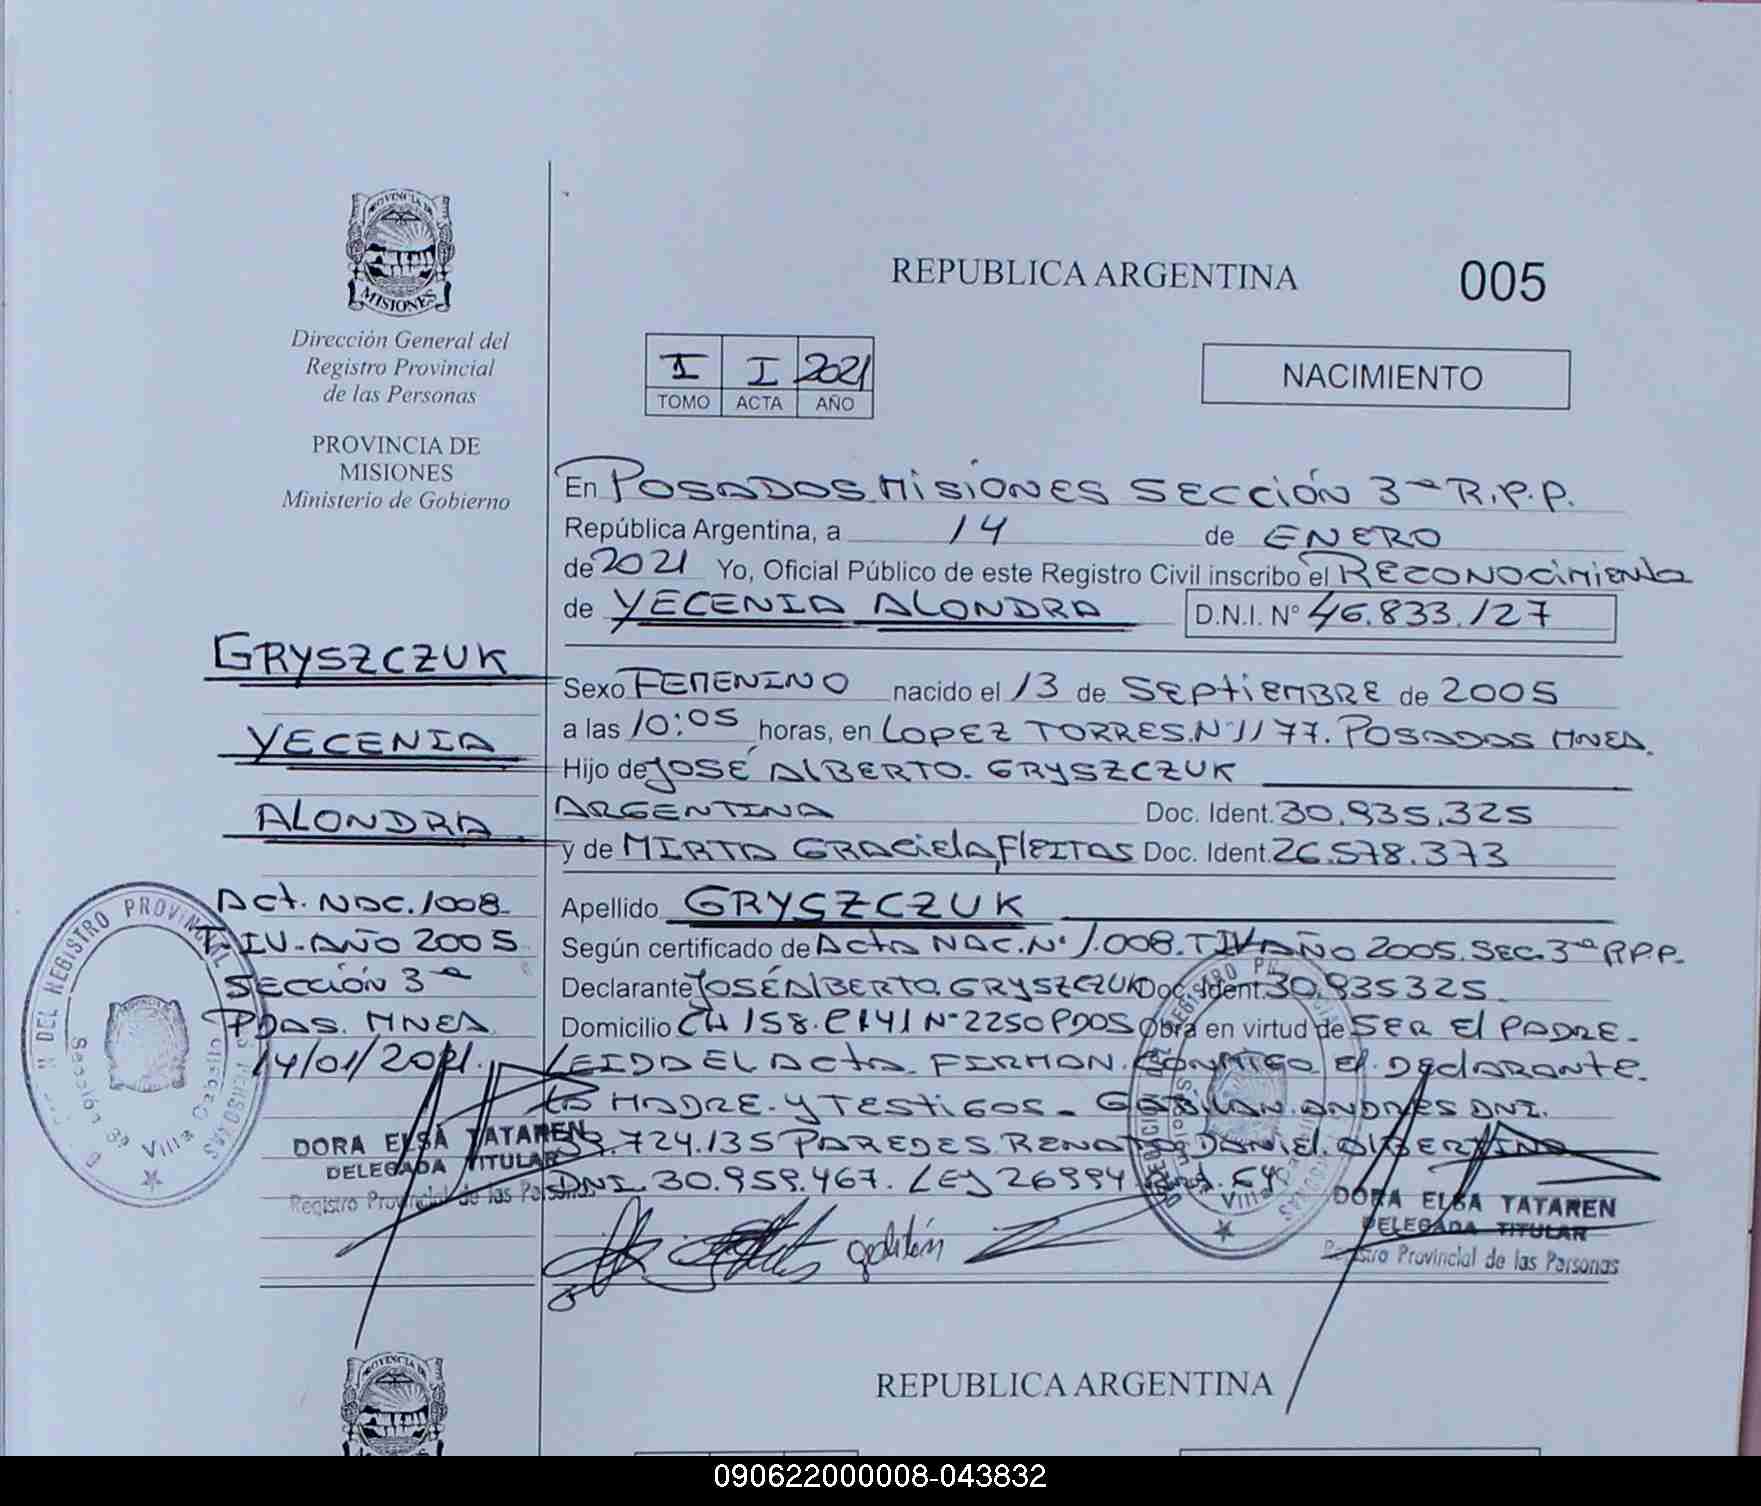 PROVINCIA DE
MISIONES
Dirección General del
Registro Provincial
de las Personas
PROVINCIA DE
MISIONES
Ministerio de Gobierno
GRYSZCZUK
YECENIA
ALONDRA
Act. NAC. 1008
T-IV-AÑO 2005
SECCIÓN 3ª
PDAS. MNES
14/01/2021.
DORA ELSA TATAREN
DELEGADA TITULAR
Registro Provincial de las Personas
DEL REGISTRO PROVINCIAL
Sección 3ª Villa Cabello
REPUBLICA ARGENTINA
005
I I 2021
TOMO ACTA AÑO
NACIMIENTO
En POSADAS MISIONES SECCIÓN 3ª R.P.P.
República Argentina, a 14 de ENERO
de 2021 Yo, Oficial Público de este Registro Civil inscribo el RECONOCIMIENTO
de YECENIA ALONDRA D.N.I. Nº 46.833.127
Sexo FEMENINO nacido el 13 de SEPTIEMBRE de 2005
a las 10:05 horas, en LOPEZ TORRES.Nº1177. POSADAS MNES.
Hijo de JOSÉ ALBERTO. GRYSZCZUK
ARGENTINA Doc. Ident. 30.935.325
y de MIRTA GRACIELA, FLEITAS Doc. Ident. 26.578.373
Apellido GRYSZCZUK
Según certificado de Acta NAC. Nº 1.008. T IV AÑO 2005. SEC. 3ª R.P.P.
Declarante JOSÉ ALBERTO. GRYSZCZUK Doc. Ident. 30.935325
Domicilio CH 158. Nº 2250 PDAS Obra en virtud de SER El PADRE.
LEIDA EL ACTA FIRMAN. CONMIGO El DEClARANTE.
LA MADRE. Y TESTIGOS. ANDRES DNI.
.724.135 PAREDES RENATO DANIEL. AlBERTINO
DNI. 30.959.467. LEY 26994 64
DORA ELSA TATAREN
DELEGADA TITULAR
Registro Provincial de las Personas
REPUBLICA ARGENTINA
PROVINCIA DE
090622000008-043832